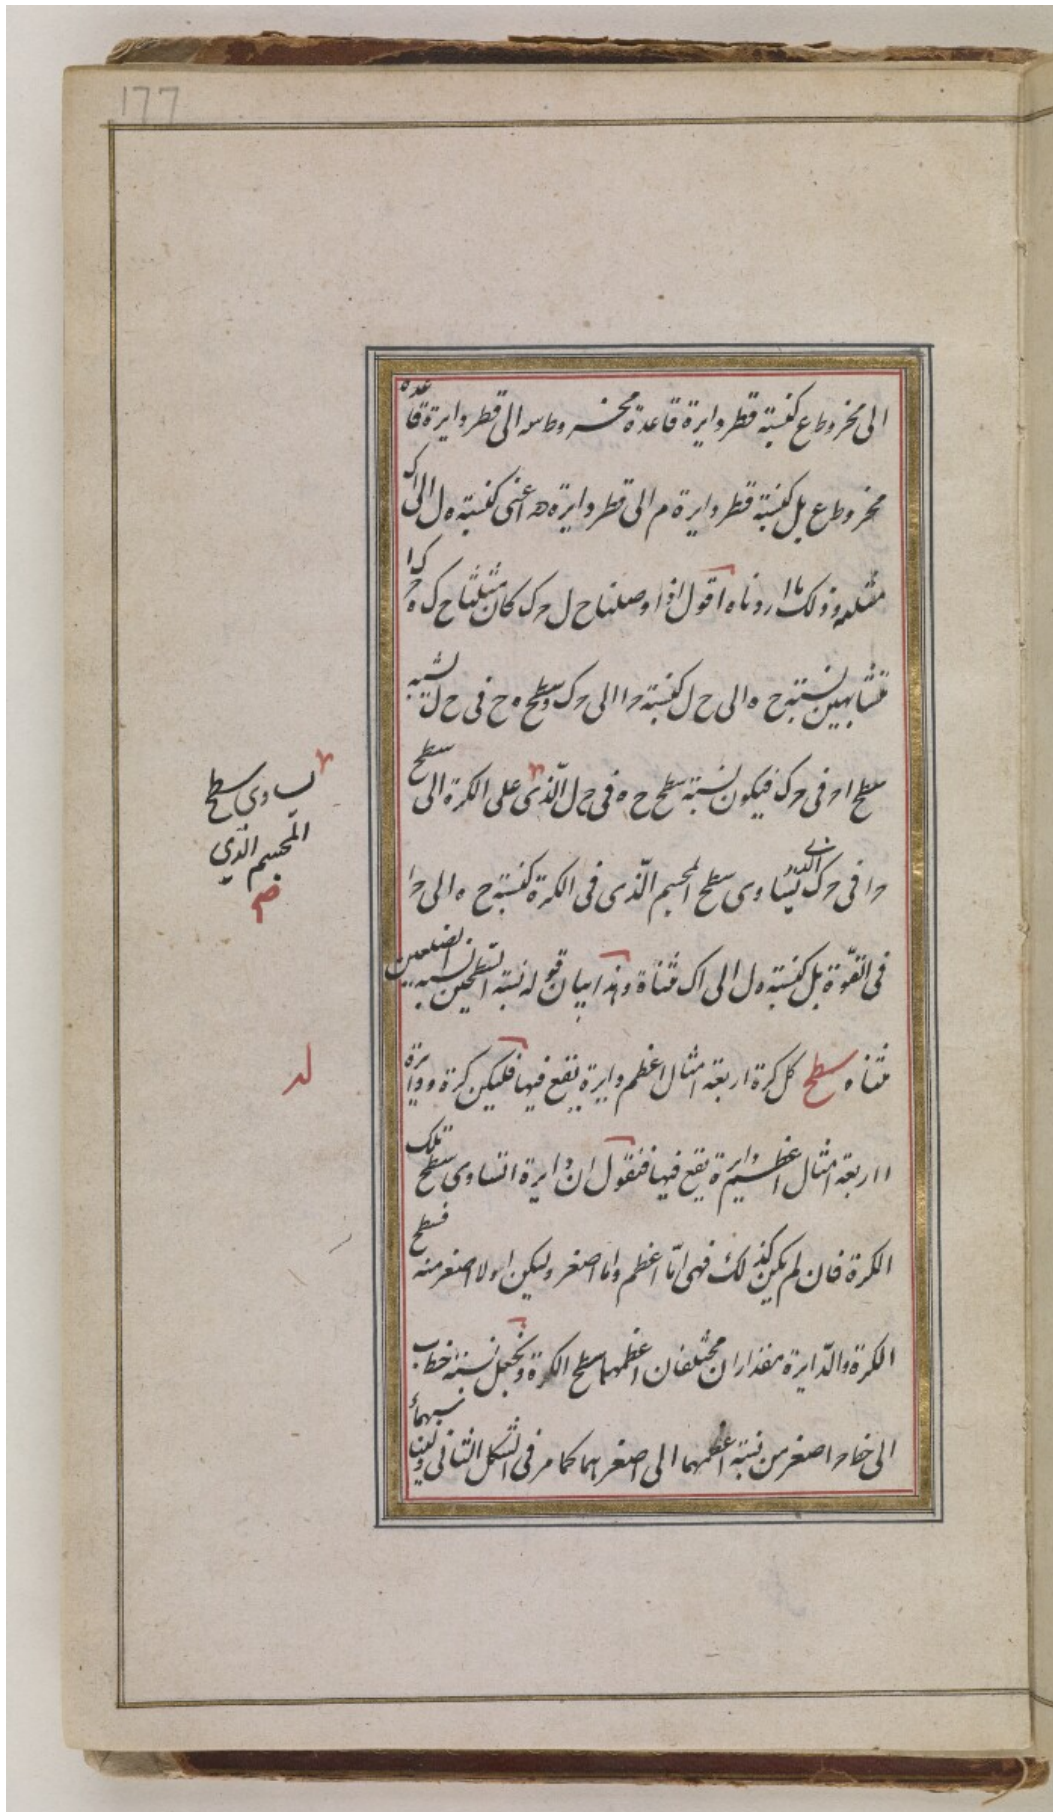 177
الى مخروط ع كنسبة قطر دايرة قاعدة مخروط س الى قطر دايرة قاعدة
مخروط ع بل كنسبة قطر دايرة م الى قطر دايرة ه اعنى كنسبة ه ل الى اك
مثلثه وذلك ما اردناه اقول اذا وصلنا ح ل ح ك كان مثلثا ح ك ا ح ه
متشابهين نسبة ح ه الى ح ل كنسبة ح ا الى ح ك وسطح ه ح فى ح ل يشبه
سطح ا ح فى ح ك فيكون نسبة سطح ح ه فى ح ل الذى على الكرة الى سطح
ح ا فى ح ك الذى يساوى سطح المجسم الذى فى الكرة كنسبة ح ه الى ح ا
فى القوة بل كنسبة ه ل الى اك مثناة وهذا بيان قوله نسبة السطحين نسبة الضلعين
مثناه سطح كل كرة اربعة امثال اعظم دايرة يقع فيها فليكن كرة ودايرة
ا اربعة امثال اعظم دايرة يقع فيها فنقول ان دايرة ا تساوى سطح تلك
الكرة فان لم يكن كذلك فهى امّا اعظم واما اصغر وليكن اولا اصغر منه فسطح
الكرة والدّايرة مقداران مختلفان اعظمهما سطح الكرة ونجعل نسبة خط ب
الى خط ح اصغر من نسبة اعظمهما الى اصغرهما كما مر فى الشكل الثانى وليكن
بينهما
يساوى سطح
المجسم الذي
صح
لد